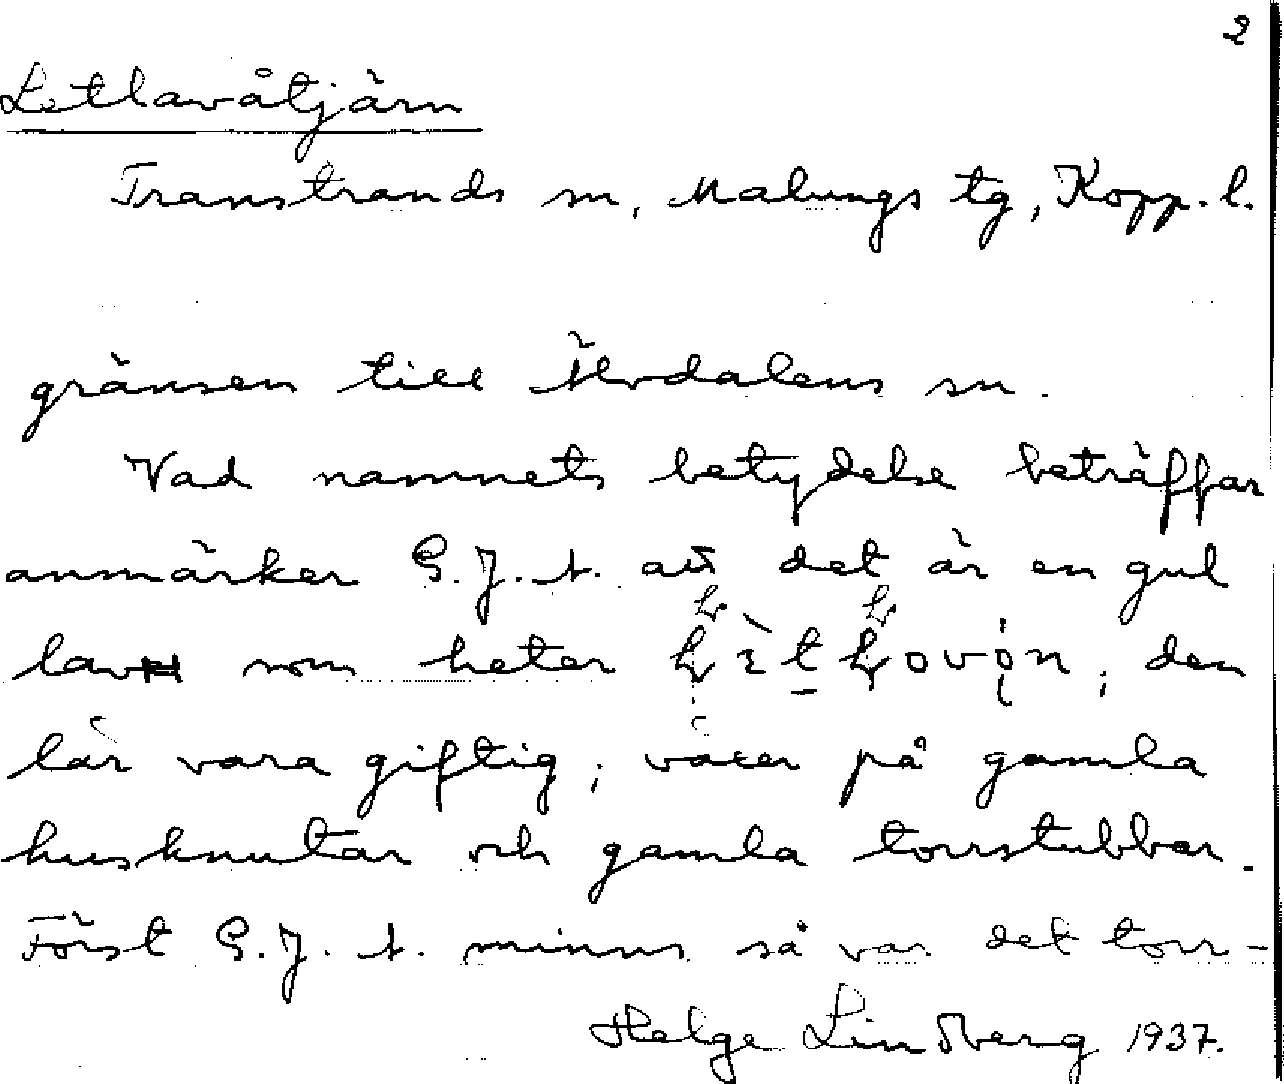 2
Letlavåtjärn
Transtrands sn, Malungs tg, Kopp. l.
gränsen till Älvdalens sn.
Vad namnets betydelse beträffar
anmärker G. J. s. att det är en gul
lav som heter den
lär vara giftig; växer på gamla
husknutar och gamla torrstubbar.
Först G. J. s. minns så var det torr-
Helge Lindberg 1937.